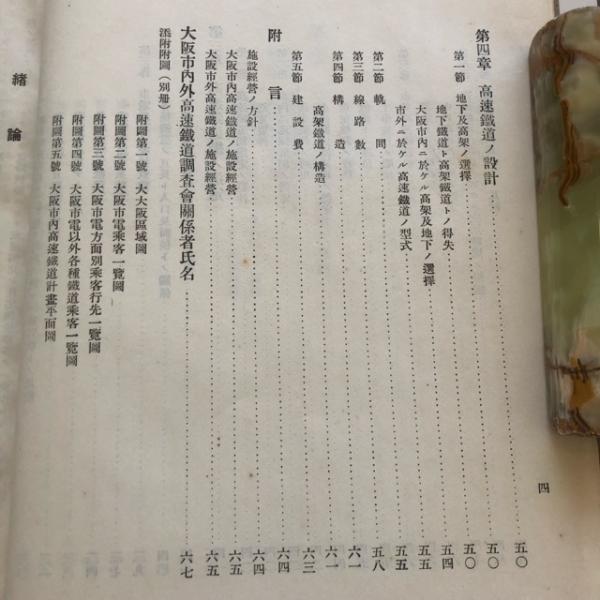 第四章 高速鐵道ノ設計 五〇
第一節 地下及高架ノ選擇 五〇
地下鐵道ト高架鐵道トノ得失 五〇
大阪市內ニ於ケル高架及地下ノ選擇 五四
市外ニ於ケル高速鐵道ノ型式 五五
第二節 軌間 五五
第三節 線路數 五八
第四節 構造 六一
高架鐵道ノ構造 六一
第五節 建設費 六三
附言 六四
施設經營ノ方針 六四
大阪市內高速鐵道ノ施設經營 六五
大阪市外高速鐵道ノ施設經營 六五
大阪市內外高速鐵道調査會關係者氏名 六七
添附附圖(別册)
附圖第一號 大大阪區域圖
附圖第二號 大阪市電乘客一覽圖
附圖第三號 大阪市電方面別乘客行先一覽圖
附圖第四號 大阪市電以外各種鐵道乘客一覽圖
附圖第五號 大阪市內高速鐵道計畫平面圖
緒論
四